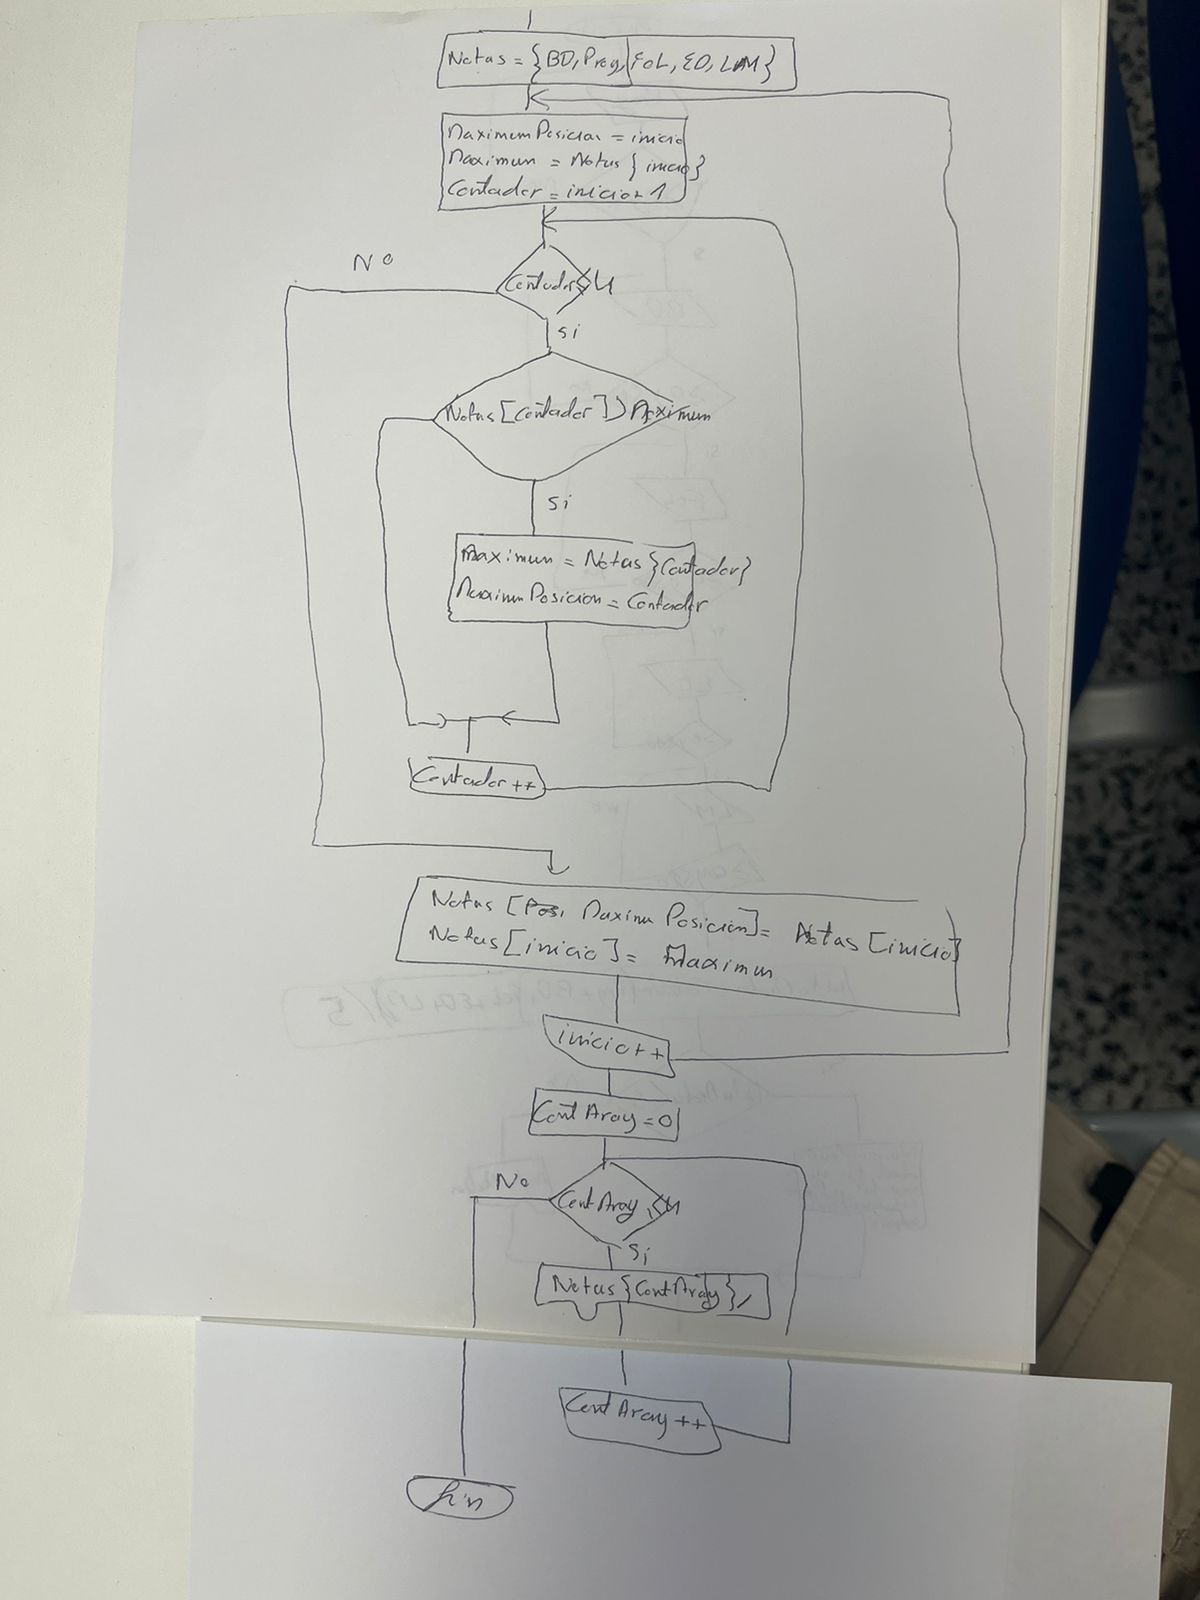 Notas = {BD, Prog, FOL, ED, LM}
MaximumPosicion = inicio
Maximun = Notas {inicio}
Contador = inicio+1
No
Contador ≤ 4
Si
Notas [Contador] > Maximum
Si
Maximun = Notas {Contador}
MaximunPosicion = Contador
Contador ++
Notas [Maximu Posicion] = Notas [inicio]
Notas [inicio] = Maximun
inicio ++
Cont Array = 0
No
Cont Array ≤ 4
Si
Notas {ContArray} /
Cont Array ++
fin